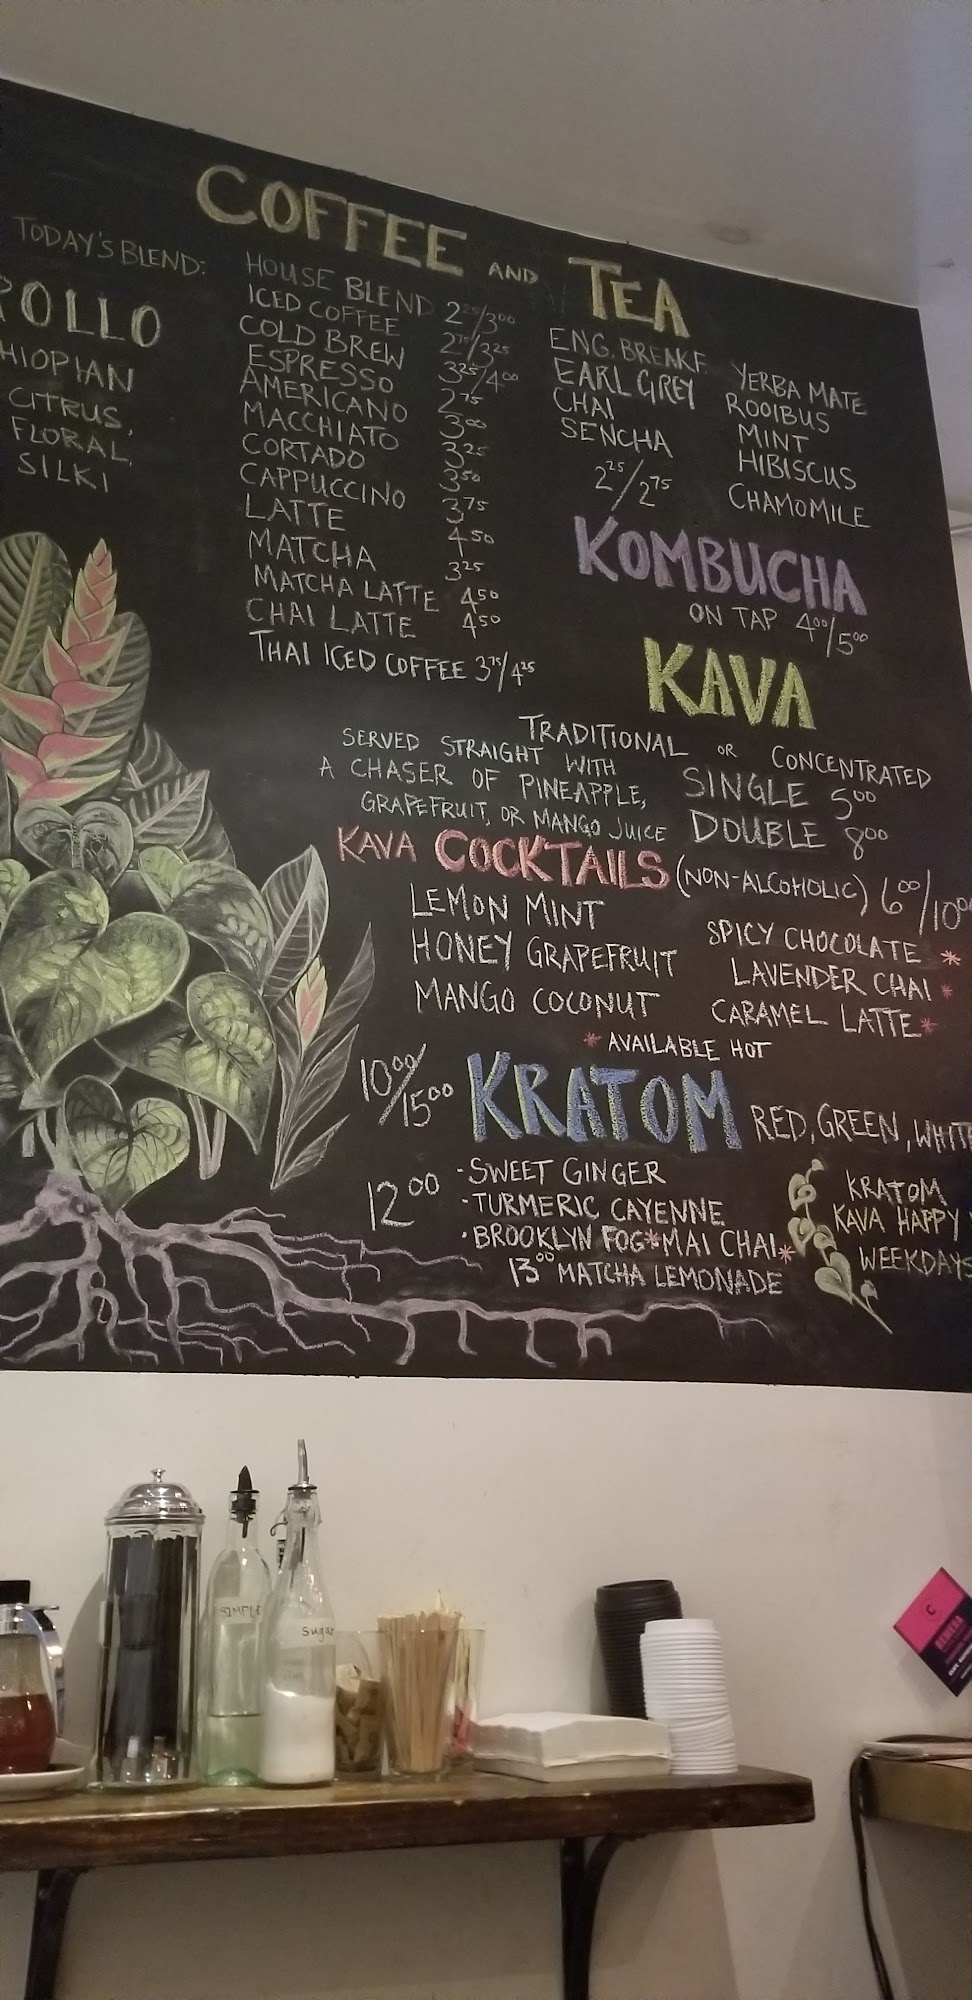 COFFEE AND TEA
TODAY'S BLEND:
POLLO
HIOPIAN
CITRUS,
FLORAL,
SILKI
HOUSE BLEND 2²⁵/3⁰⁰
ICED COFFEE 2⁷⁵/3²⁵
COLD BREW 3²⁵/4⁰⁰
ESPRESSO 2⁷⁵
AMERICANO 3⁰⁰
MACCHIATO 3²⁵
CORTADO 3⁵⁰
CAPPUCCINO 3⁷⁵
LATTE 4⁵⁰
MATCHA 3²⁵
MATCHA LATTE 4⁵⁰
CHAI LATTE 4⁵⁰
THAI ICED COFFEE 3⁷⁵/4²⁵
ENG. BREAKF.
EARL GREY
CHAI
SENCHA
2²⁵/2⁷⁵
YERBA MATE
ROOIBUS
MINT
HIBISCUS
CHAMOMILE
KOMBUCHA
ON TAP 4⁰⁰/5⁰⁰
KAVA
TRADITIONAL OR CONCENTRATED
SERVED STRAIGHT WITH
A CHASER OF PINEAPPLE,
GRAPEFRUIT, OR MANGO JUICE
SINGLE 5⁰⁰
DOUBLE 8⁰⁰
KAVA COCKTAILS (NON-ALCOHOLIC) 6⁰⁰/10⁰⁰
LEMON MINT
HONEY GRAPEFRUIT
MANGO COCONUT
SPICY CHOCOLATE *
LAVENDER CHAI *
CARAMEL LATTE *
* AVAILABLE HOT
10⁰⁰/15⁰⁰ KRATOM RED, GREEN, WHITE
12⁰⁰
- SWEET GINGER
· TURMERIC CAYENNE
· BROOKLYN FOG * MAI CHAI *
13⁰⁰ MATCHA LEMONADE
KRATOM
KAVA HAPPY
WEEKDAYS
SIMPLE
sugar